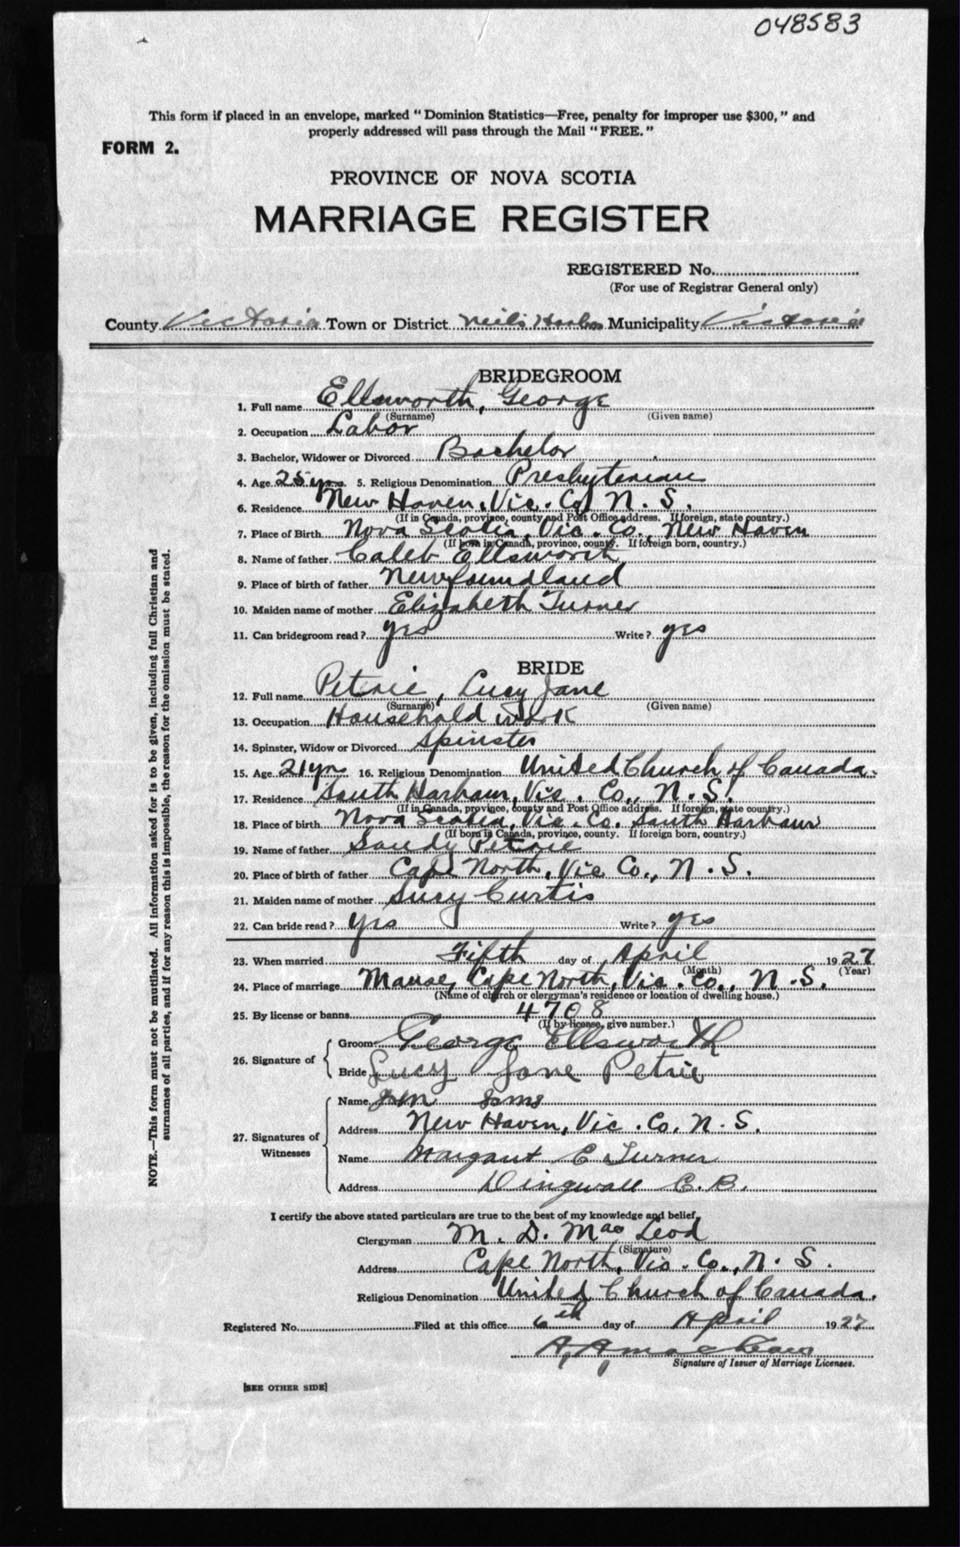 048583
This form if placed in an envelope, marked "Dominion Statistics—Free, penalty for improper use $300," and
properly addressed will pass through the Mail "FREE."
FORM 2.
PROVINCE OF NOVA SCOTIA
MARRIAGE REGISTER
REGISTERED No.
(For use of Registrar General only)
County Victoria Town or District Neils Harbor Municipality Victoria
BRIDEGROOM
1. Full name Ellsworth, George
(Surname) (Given name)
2. Occupation Labor
3. Bachelor, Widower or Divorced Bachelor
4. Age 25 yrs. 5. Religious Denomination Presbyterian
6. Residence New Haven, Vic. Co, N. S.
(If in Canada, province, county and Post Office address. If foreign, state country.)
7. Place of Birth Nova Scotia, Vic. Co., New Haven
(If born in Canada, province, county. If foreign born, country.)
8. Name of father Caleb Ellsworth
9. Place of birth of father Newfoundland
10. Maiden name of mother Elizabeth Turner
11. Can bridegroom read? yes Write? yes
BRIDE
12. Full name Petrie, Lucy Jane
(Surname) (Given name)
13. Occupation Household work
14. Spinster, Widow or Divorced Spinster
15. Age 21 yrs 16. Religious Denomination United Church of Canada.
17. Residence South Harbour, Vic. Co., N. S.
(If in Canada, province, county and Post Office address. If foreign, state country.)
18. Place of birth Nova Scotia, Vic. Co. South Harbour
(If born in Canada, province, county. If foreign born, country.)
19. Name of father Sandy Petrie
20. Place of birth of father Cape North, Vic Co., N. S.
21. Maiden name of mother Susy Curtis
22. Can bride read? yes Write? yes
23. When married Fifth day of April 1927
(Month) (Year)
24. Place of marriage Manse, Cape North, Vic. Co., N. S.
(Name of church or clergyman's residence or location of dwelling house.)
25. By license or banns 4708
(If by license, give number.)
26. Signature of
Groom George Ellsworth
Bride Lucy Jane Petrie
27. Signatures of Witnesses
Name
Address New Haven, Vic. Co. N. S.
Name Margaret C Turner
Address Dingwall C. B.
I certify the above stated particulars are true to the best of my knowledge and belief,
Clergyman M. D. MacLeod
(Signature)
Address Cape North, Vic. Co., N. S.
Religious Denomination United Church of Canada.
Registered No. Filed at this office 6th day of April 1927
Signature of Issuer of Marriage Licenses.
[SEE OTHER SIDE]
NOTE.—This form must not be mutilated. All information asked for is to be given, including full Christian and
surnames of all parties, and if for any reason this is impossible, the reason for the omission must be stated.